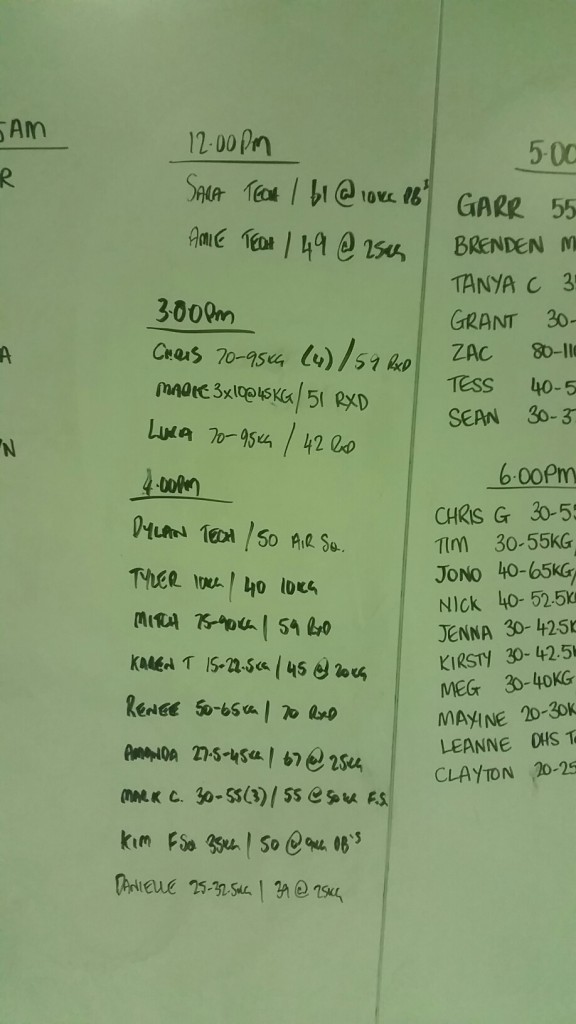 5AM
R
A
N
12.00PM
SARA TECH / 61 @ 10KG DB'S
AMIE TECH / 49 @ 25KG
3.00PM
CHRIS 70-95KG (4) / 59 RXD
3X10@45KG / 51 RXD
LUKA 70-95KG / 42 RXD
4.00PM
DYLAN TECH / 50 AIR SQ.
TYLER 10KG / 40 10KG
MITCH 75-90KG / 59 RXD
KAREN T 15-22.5KG / 45 @ 20KG
RENEE 50-65KG / 70 RXD
AMANDA 27.5-45KG / 67 @ 25KG
MARK C. 30-55(3) / 55 @ 50KG F.S.
KIM F SQ 35KG / 50 @ 9KG DB'S
DANIELLE 25-32.5KG / 39 @ 25KG
5.00
GARR 55
BRENDEN M
TANYA C 3
GRANT 30-
ZAC 80-11
TESS 40-5
SEAN 30-3
6.00PM
CHRIS G 30-55
TIM 30-55KG/
JONO 40-65KG/
NICK 40-52.5K
JENNA 30-42.5K
KIRSTY 30-42.5K
MEG 30-40KG
MAXINE 20-30K
LEANNE DHS T
CLAYTON 20-25